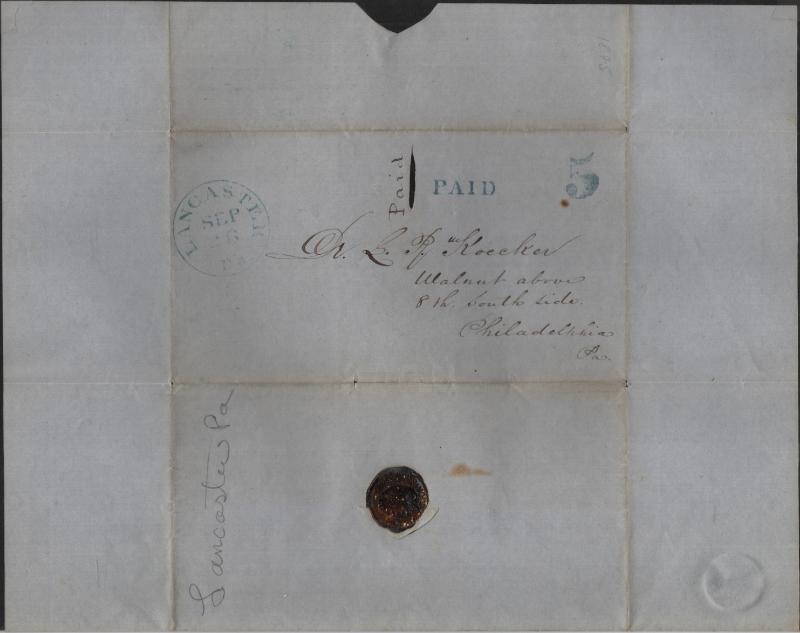 Paid
PAID
5
LANCASTER
SEP
Pa
Dr. L. R. Koecker
Walnut above
8th. South side.
Philadelphia
Pa.
Lancaster Pa